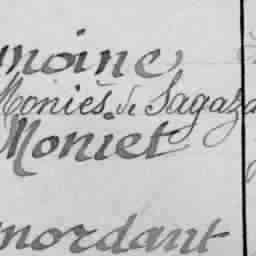 moine
Moniès de Sagaza
Moniet
mordant